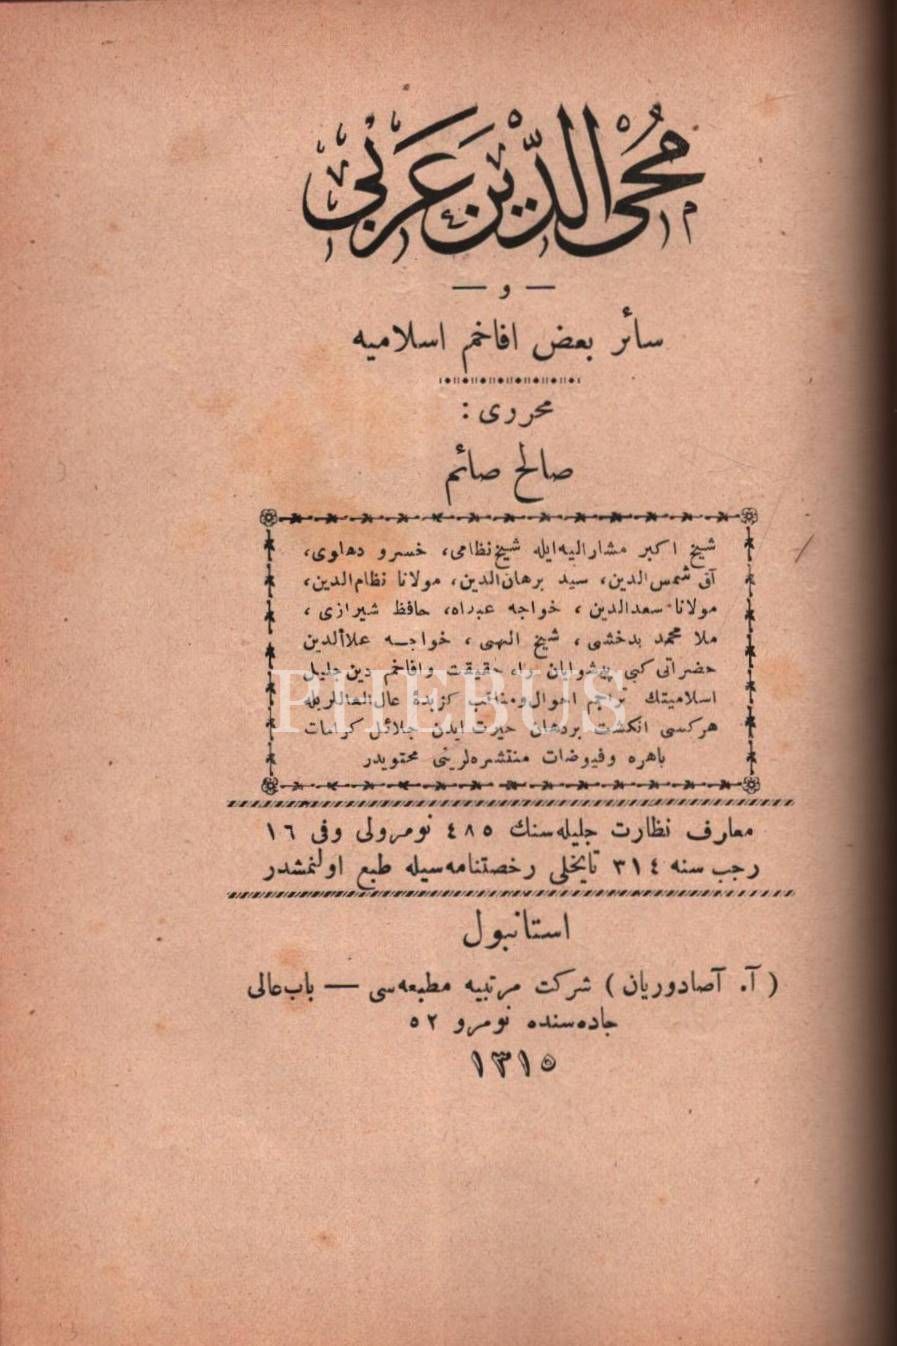 مُحْيِ الدِّينِ عَرَبِي
— و —
سائر بعض افاخم اسلاميه
محررى :
صالح صائم
شيخ اكبر مشاراليه‌ايله شيخ نظامى، خسرو دهلوى،
آق شمس‌الدين، سيد برهان‌الدين، مولانا نظام‌الدين،
مولانا سعدالدين ، خواجه عبدالله، حافظ شيرازى ،
ملا محمد بدخشى ، شيخ الهى ، خواجه علأالدين
حضراتى كبى پيشوايان راه حقيقت وافاخم دين جليل
اسلاميتك تراجم احوال‌ومناقب كزيده
هركسى انكشت بردهان حيرت ايدن جلائل كرامات
باهره وفيوضات منتشره‌لرينى محتويدر
معارف نظارت جليله‌سنك ٤٨٥ نومرولى وفى ١٦
رجب سنه ٣١٤ تاريخلى رخصتنامه‌سيله طبع اولنمشدر
استانبول
( آ. آصادوريان ) شركت مرتبيه مطبعه‌سى — باب‌عالى
جاده‌سنده نومرو ٥٢
١٣١٥
PHEBUS